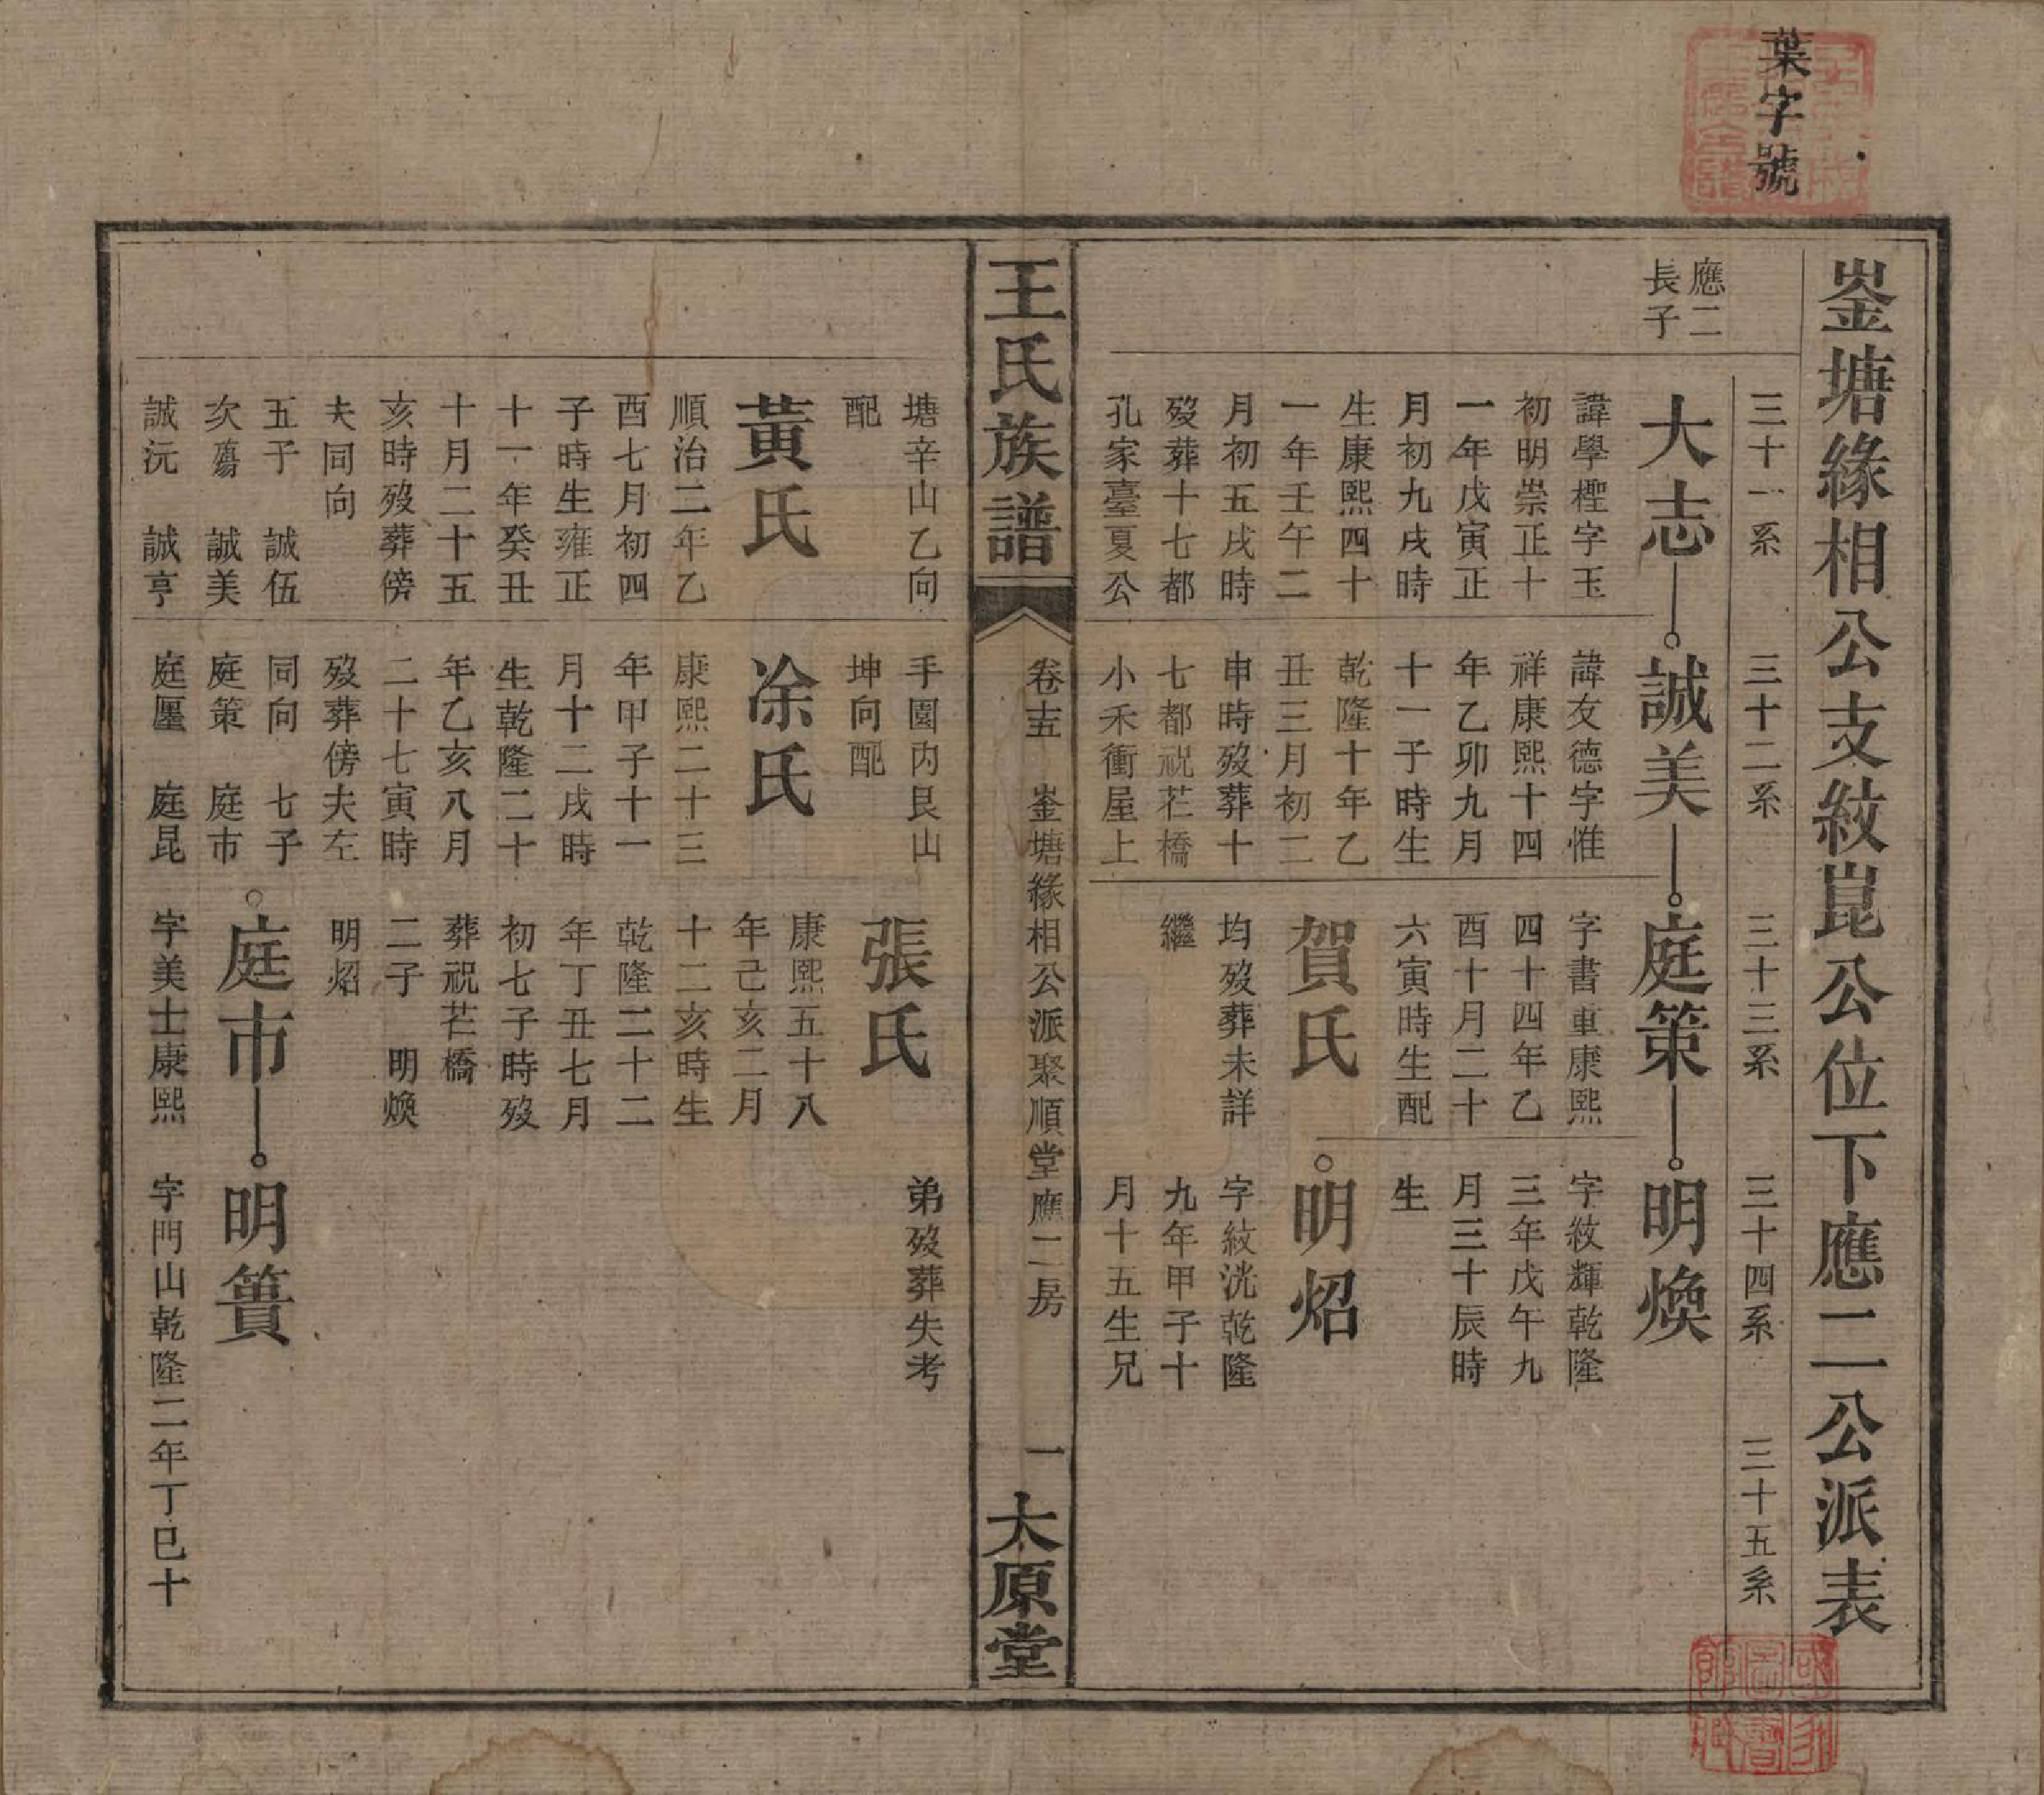 葉字號
崟塘緣相公支紋崑公位下應二公派表
三十一系
三十二系
三十三系
三十四系
三十五系
應二
長子
大志
諱學檉字玉
初明崇正十
一年戊寅正
月初九戌時
生康熙四十
一年壬午二
月初五戌時
歿葬十七都
孔家臺夏公
塘辛山乙向
配
黃氏
順治二年乙
酉七月初四
子時生雍正
十一年癸丑
十月二十五
亥時歿葬傍
夫同向
五子 誠伍
次殤 誠美
誠沅 誠亨
誠美
諱友德字惟
祥康熙十四
年乙卯九月
十一子時生
乾隆十年乙
丑三月初二
申時歿葬十
七都祝芒橋
小禾衝屋上
手園內艮山
坤向配
凃氏
康熙二十三
年甲子十一
月十二戌時
生乾隆二十
年乙亥八月
二十七寅時
歿葬傍夫左
同向 七子
庭策 庭市
庭廛 庭昆
庭策
字書車康熙
四十四年乙
酉十月二十
六寅時生配
賀氏
均歿葬未詳
繼
張氏
康熙五十八
年己亥二月
十二亥時生
乾隆二十二
年丁丑七月
初七子時歿
葬祝芒橋
二子 明煥
明炤
庭市
字美士康熙
明煥
字紋輝乾隆
三年戊午九
月三十辰時
生
明炤
字紋洸乾隆
九年甲子十
月十五生兄
弟歿葬失考
明簣
字門山乾隆二年丁巳十
王氏族譜
卷十五
崟塘緣相公派聚順堂應二房
一
太原堂